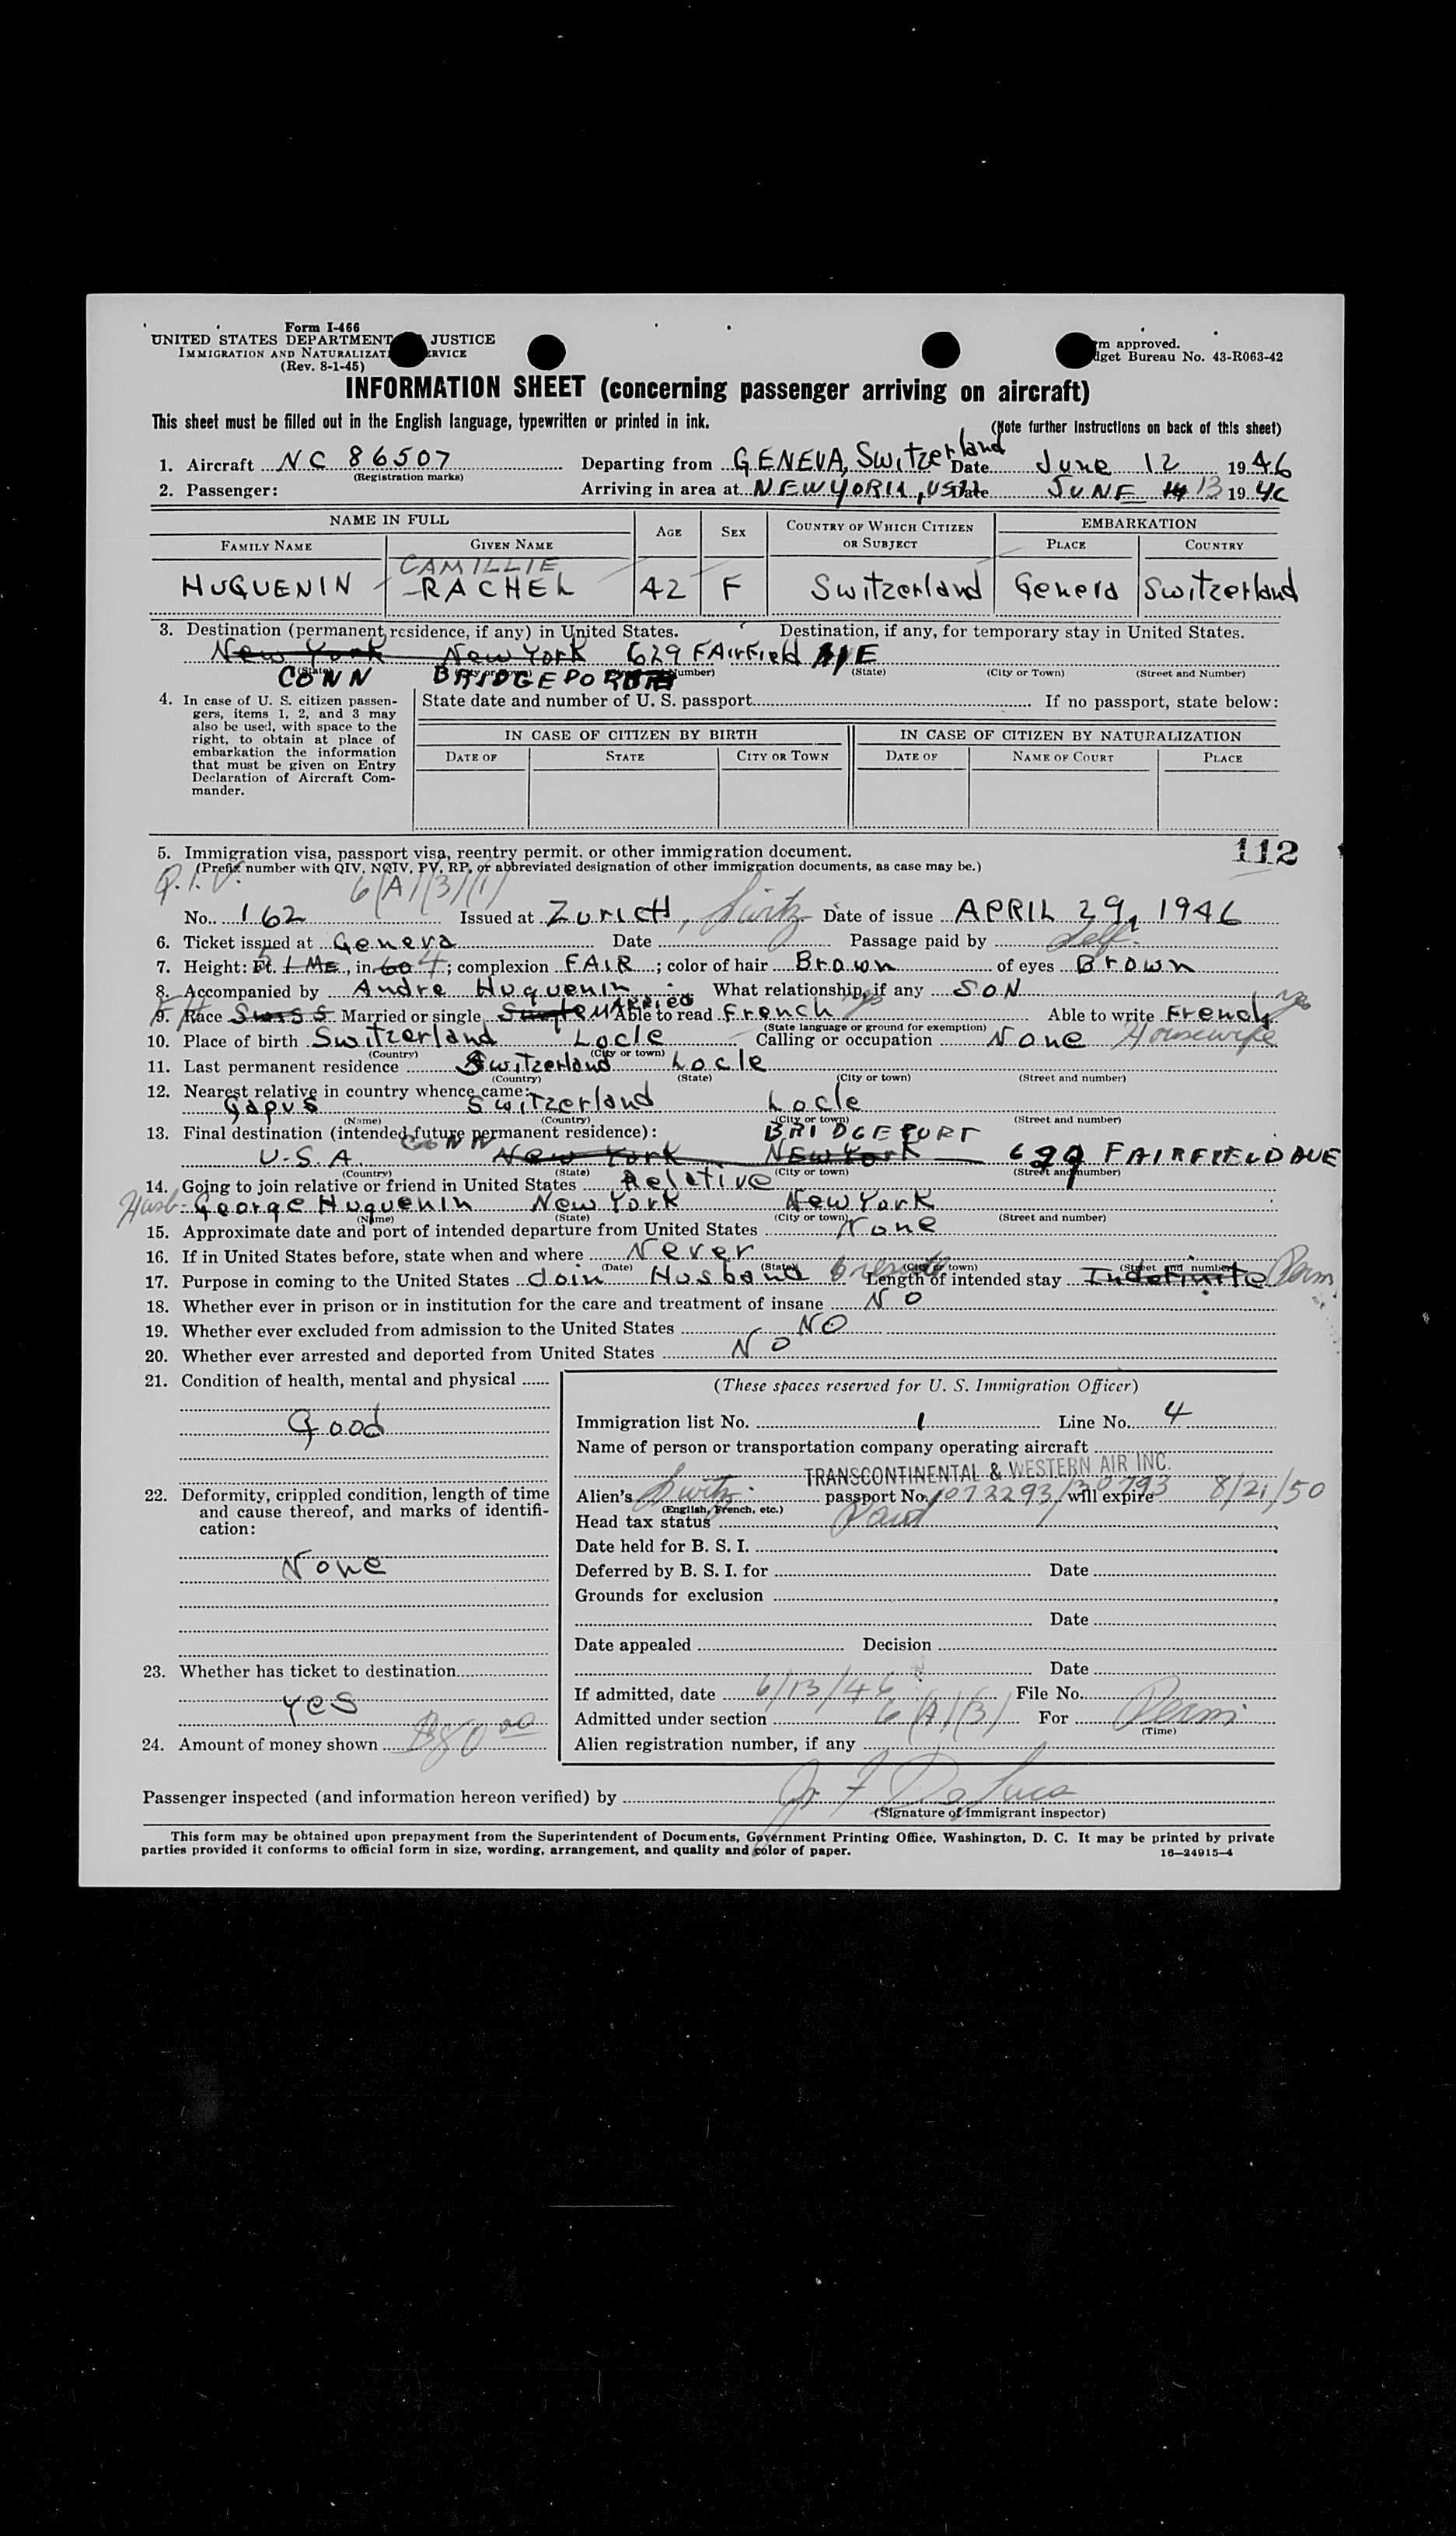 Form I-466
UNITED STATES DEPARTMENT JUSTICE
IMMIGRATION AND NATURALIZAT ERVICE
(Rev. 8-1-45)
m approved.
dget Bureau No. 43-R063-42
INFORMATION SHEET (concerning passenger arriving on aircraft)
This sheet must be filled out in the English language, typewritten or printed in ink.
(Note further instructions on back of this sheet)
1. Aircraft NC 86507 Departing from GENEVA, Switzerland Date June 12 1946
(Registration marks)
2. Passenger: Arriving in area at NEW YORK, USA Date JUNE 13 1946
NAME IN FULL AGE SEX COUNTRY OF WHICH CITIZEN OR SUBJECT EMBARKATION
FAMILY NAME GIVEN NAME PLACE COUNTRY
CAMILLIE
HUGUENIN RACHEL 42 F Switzerland Geneva Switzerland
3. Destination (permanent residence, if any) in United States. Destination, if any, for temporary stay in United States.
New York New York 629 FAIRField AVE
(State) (City or Town) (Street and Number) (State) (City or Town) (Street and Number)
CONN BRIDGEPORT
4. In case of U. S. citizen passengers, items 1, 2, and 3 may also be used, with space to the right, to obtain at place of embarkation the information that must be given on Entry Declaration of Aircraft Commander.
State date and number of U. S. passport If no passport, state below:
IN CASE OF CITIZEN BY BIRTH IN CASE OF CITIZEN BY NATURALIZATION
DATE OF STATE CITY OR TOWN DATE OF NAME OF COURT PLACE
112
5. Immigration visa, passport visa, reentry permit, or other immigration document.
(Prefix number with QIV, NQIV, PV, RP, or abbreviated designation of other immigration documents, as case may be.)
Q.I.V. 6(A)(3)(1)
No. 162 Issued at Zurich, Switz Date of issue APRIL 29, 1946
6. Ticket issued at Geneva Date Passage paid by Self.
7. Height: Ft. 5 1 ME, in. 60 4; complexion FAIR; color of hair Brown of eyes Brown
8. Accompanied by Andre Huguenin What relationship, if any SON
9. Race Swiss Married or single Single MARRIED Able to read French yes Able to write French yes
(State language or ground for exemption)
10. Place of birth Switzerland Locle Calling or occupation None Housewife
(Country) (City or town)
11. Last permanent residence Switzerland Locle
(Country) (State) (City or town) (Street and number)
12. Nearest relative in country whence came:
Gapus Switzerland Locle
(Name) (Country) (City or town) (Street and number)
13. Final destination (intended future permanent residence):
CONN BRIDGEPORT
U.S.A. New York New York 629 FAIRFIELD AVE
(Country) (State) (City or town) (Street and number)
14. Going to join relative or friend in United States Relative
Husb: George Huguenin New York New York
(Name) (State) (City or town) (Street and number)
15. Approximate date and port of intended departure from United States None
16. If in United States before, state when and where Never
(Date) (State) (City or town) (Street and number)
17. Purpose in coming to the United States Join Husband & reside Length of intended stay Indefinite Perm
18. Whether ever in prison or in institution for the care and treatment of insane No
19. Whether ever excluded from admission to the United States NO
20. Whether ever arrested and deported from United States No
21. Condition of health, mental and physical
Good
22. Deformity, crippled condition, length of time and cause thereof, and marks of identification:
None
23. Whether has ticket to destination
yes
24. Amount of money shown
(These spaces reserved for U. S. Immigration Officer)
Immigration list No. 1 Line No. 4
Name of person or transportation company operating aircraft
TRANSCONTINENTAL & WESTERN AIR INC.
Alien's Switz. passport No. 1072293/30793 will expire 8/21/50
(English, French, etc.)
Head tax status Paid
Date held for B. S. I.
Deferred by B. S. I. for Date
Grounds for exclusion
Date
Date appealed Decision
Date
If admitted, date 6/13/46 File No.
Admitted under section 6(A)(3) For Perm
(Time)
Alien registration number, if any
Passenger inspected (and information hereon verified) by
(Signature of immigrant inspector)
This form may be obtained upon prepayment from the Superintendent of Documents, Government Printing Office, Washington, D. C. It may be printed by private
parties provided it conforms to official form in size, wording, arrangement, and quality and color of paper. 16—24915-4